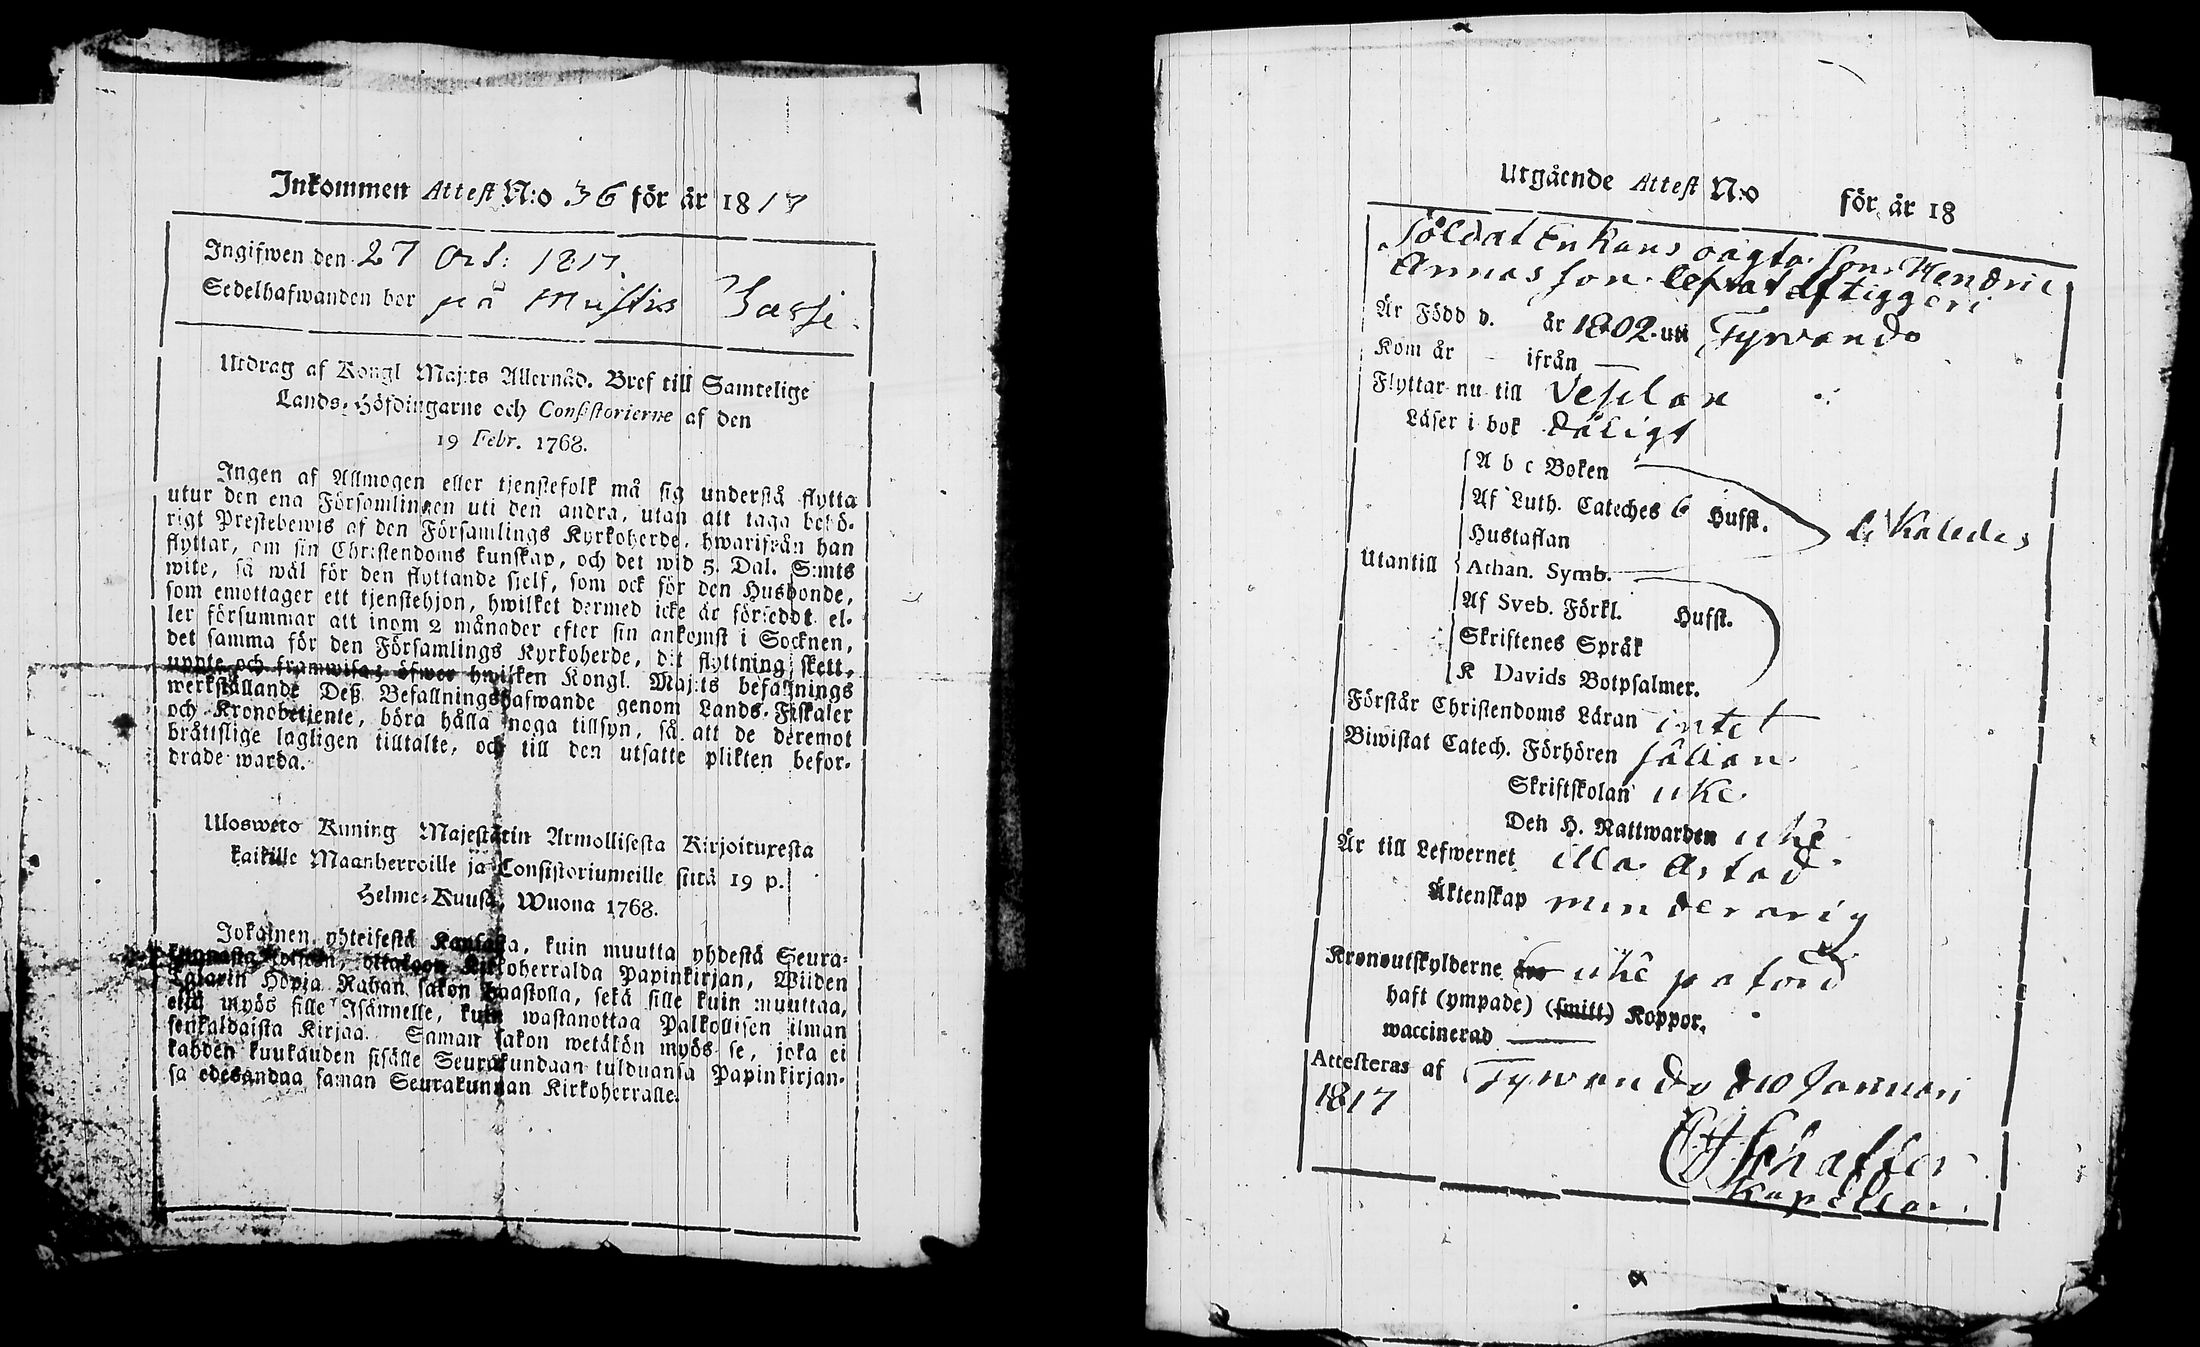 Inkommen Attest N:o 36 för år 1817
Ingifwen den 27 Oct: 1817.
Sedelhafwanden bor på Mustis Jassi.
Utdrag af Kongl Maj:ts Allernåd. Bref till Samtelige
Lands-Höfdingarne och Consistorierne af den
19 Febr. 1768.
Ingen af Allmogen eller tjenstefolk må sig understå flytta
utur den ena Församlingen uti den andra, utan att taga behö-
rigt Prestebewis af den Församlings Kyrkoherde, hwarifrån han
flyttar, om sin Christendoms kunskap, och det wid 5. Dal. S:mts
wite, så wäl för den flyttande sielf, som ock för den Husbonde,
som emottager ett tjenstehjon, hwilket dermed icke är försedt el-
ler försummar att inom 2 månader efter sin ankomst i Socknen,
det samma för den Församlings Kyrkoherde, dit flyttning skett,
uppte och framwisa; öfwer hwilken Kongl. Maj:ts befallnings
werkställande Deß Befallningshafwande genom Lands-Fiskaler
och Kronobetjente, böra hålla noga tillsyn, så att de deremot
bråttslige lagligen tilltalte, och till den utsatte plikten befor-
drade warda.
Uloswето Kuning Majestetin Armollisesta Kirjoituxesta
kaikille Maanherroille ja Consistoriumeille siitä 19 p.
Helme-Kuusa, Wuona 1768.
Jokainen yhteisestä Kansasta, kuin muutta yhdestä Seura-
kunnasta toiseen, ottakoon Kirkoherralda Papinkirjan, Wiiden
Talarin Hopia Rahan sakon haastolla, sekä sille kuin muuttaa,
että myös sille Isännelle, kuin wastanottaa Palkollisen ilman
senkaldaista Kirjaa. Saman sakon wetäkön myös se, joka ei
kahden kuukauden sisälle Seurakundaan tulduansa Papinkirjan-
sa edesandaa saman Seurakunnan Kirkoherralle.
Utgående Attest N:o för år 18
Soldat Enkans oägta Son Hendric
Annasson lefvat af tiggeri
Är Född d. år 1802 uti Tyrvändö
Kom år – ifrån —
Flyttar nu till Vesilax
Läser i bok dåligt
A b c Boken
Af Luth. Cateches 6 Hufst.
likaledes
Hustaflan
Utantill
Athan. Symb.
Af Sveb. Förkl. Hufst.
Skriftenes Språk
K Davids Botpsalmer.
Förstår Christendoms Läran intet
Biwistat Catech. Förhören sällan
Skriftskolan icke
Den H. Nattwarden icke
Är till Lefwernet illa artad
Äktenskap minderårig
Kronoutskylderne äro icke påförd
haft (ympade) (smitt) Koppor.
waccinerad —
Attesteras af Tyrvändö d 10 Januari
1817
Kapellan.